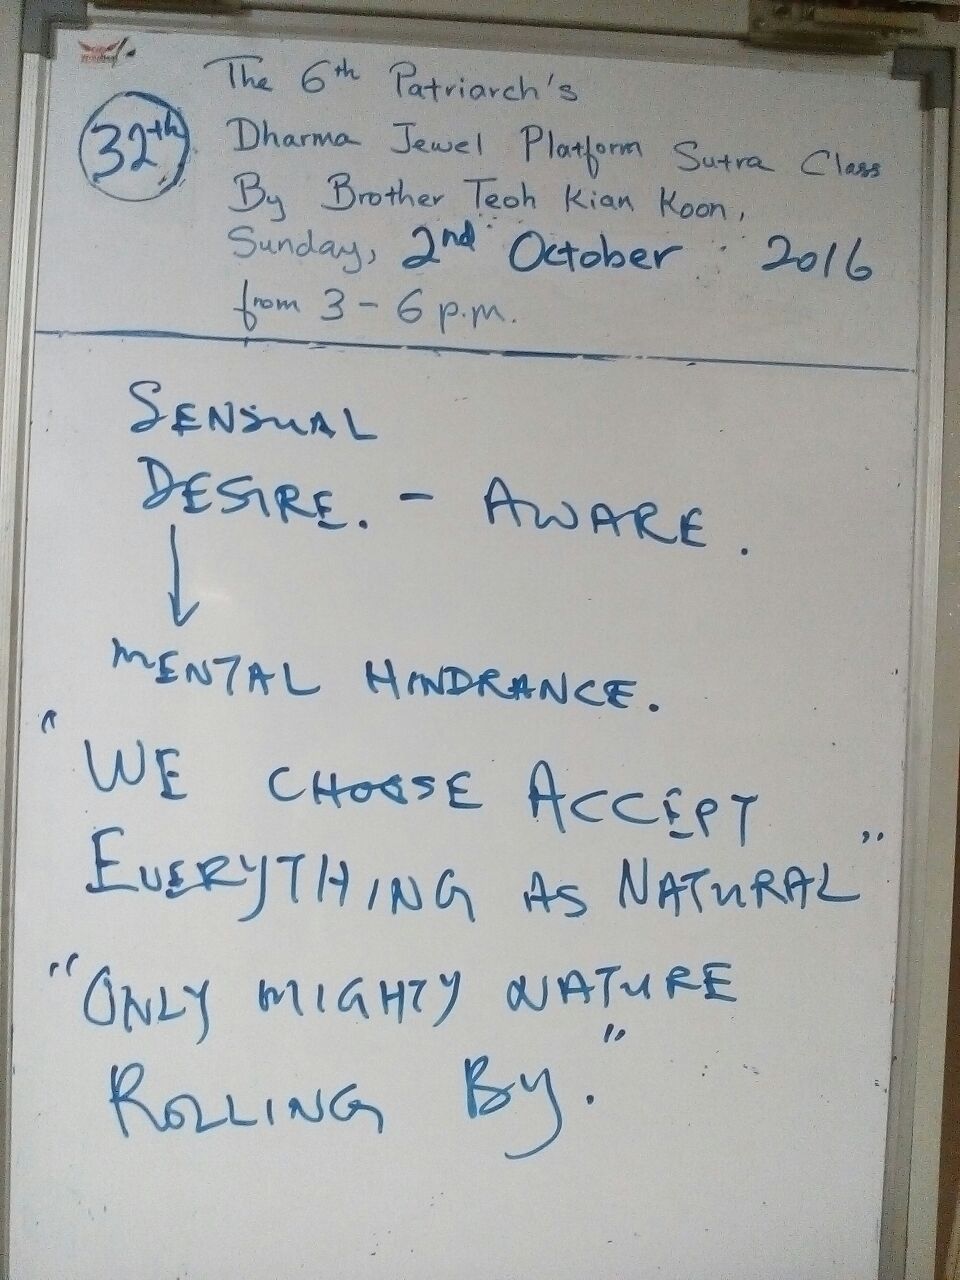 The 6th Patriarch's
32th Dharma Jewel Platform Sutra Class
By Brother Teoh Kian Koon,
Sunday, 2nd October 2016
from 3 - 6 p.m.
SENSUAL
DESIRE. - AWARE.
MENTAL HINDRANCE.
"WE CHOOSE ACCEPT
EVERYTHING AS NATURAL"
"ONLY MIGHTY NATURE
ROLLING BY."